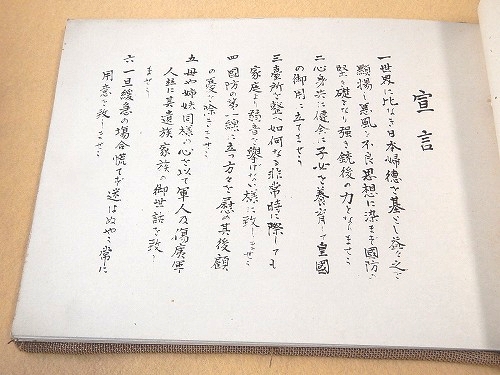 宣言
一世界に比なき日本婦徳を基とし益々之を
顕揚し悪風と不良思想に染まず國防の
堅き礎となり強き銃後の力となりませう
二心身共に健全に子女を養育して皇國
の御用に立てませう
三臺所を整へ如何なる非常時に際しても
家庭より弱音を擧げない様に致しませう
四國防の第一線に立つ方々を慰め其後顧
の憂を除きませう
五母や姉妹同様の心を以て軍人及傷痍軍
人並に其遺族家族の御世話を致し
ませう
六一旦緩急の場合慌てず迷はぬやう常に
用意を致しませう